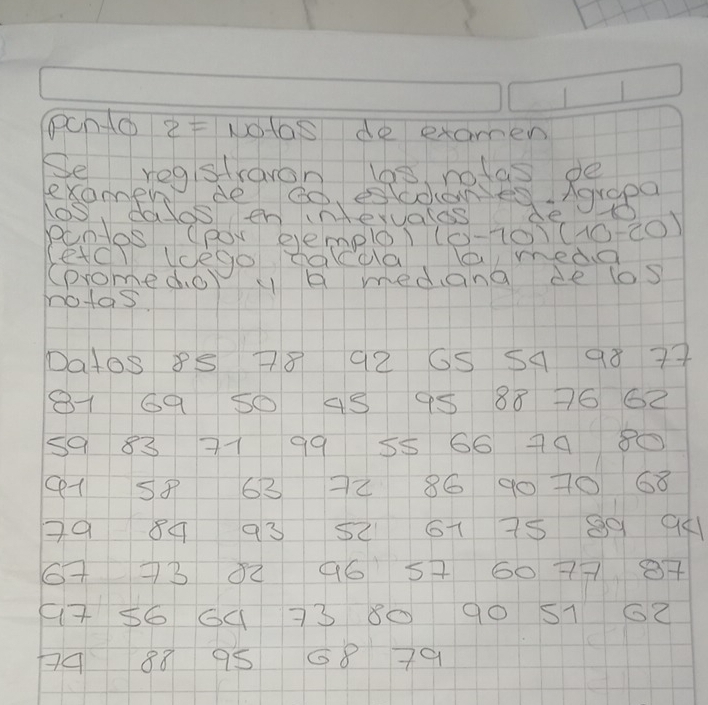 punto 2 = Notas de examen
Se registraron las notas de
examen de 60 estudiantes. Agrupa
los datos en intervalos de 10
puntos (por ejemplo) (0-10) (10-20)
(etc) luego calcula la media
(promedio) y la mediana de los
notas.
Datos 85 78 92 65 54 98 77
81 69 50 45 95 88 76 62
59 83 71 99 55 66 74 80
91 58 63 72 86 90 70 68
79 84 93 52 61 75 89 94
67 73 82 96 57 60 77 87
97 56 64 73 80 90 51 62
74 88 95 68 79